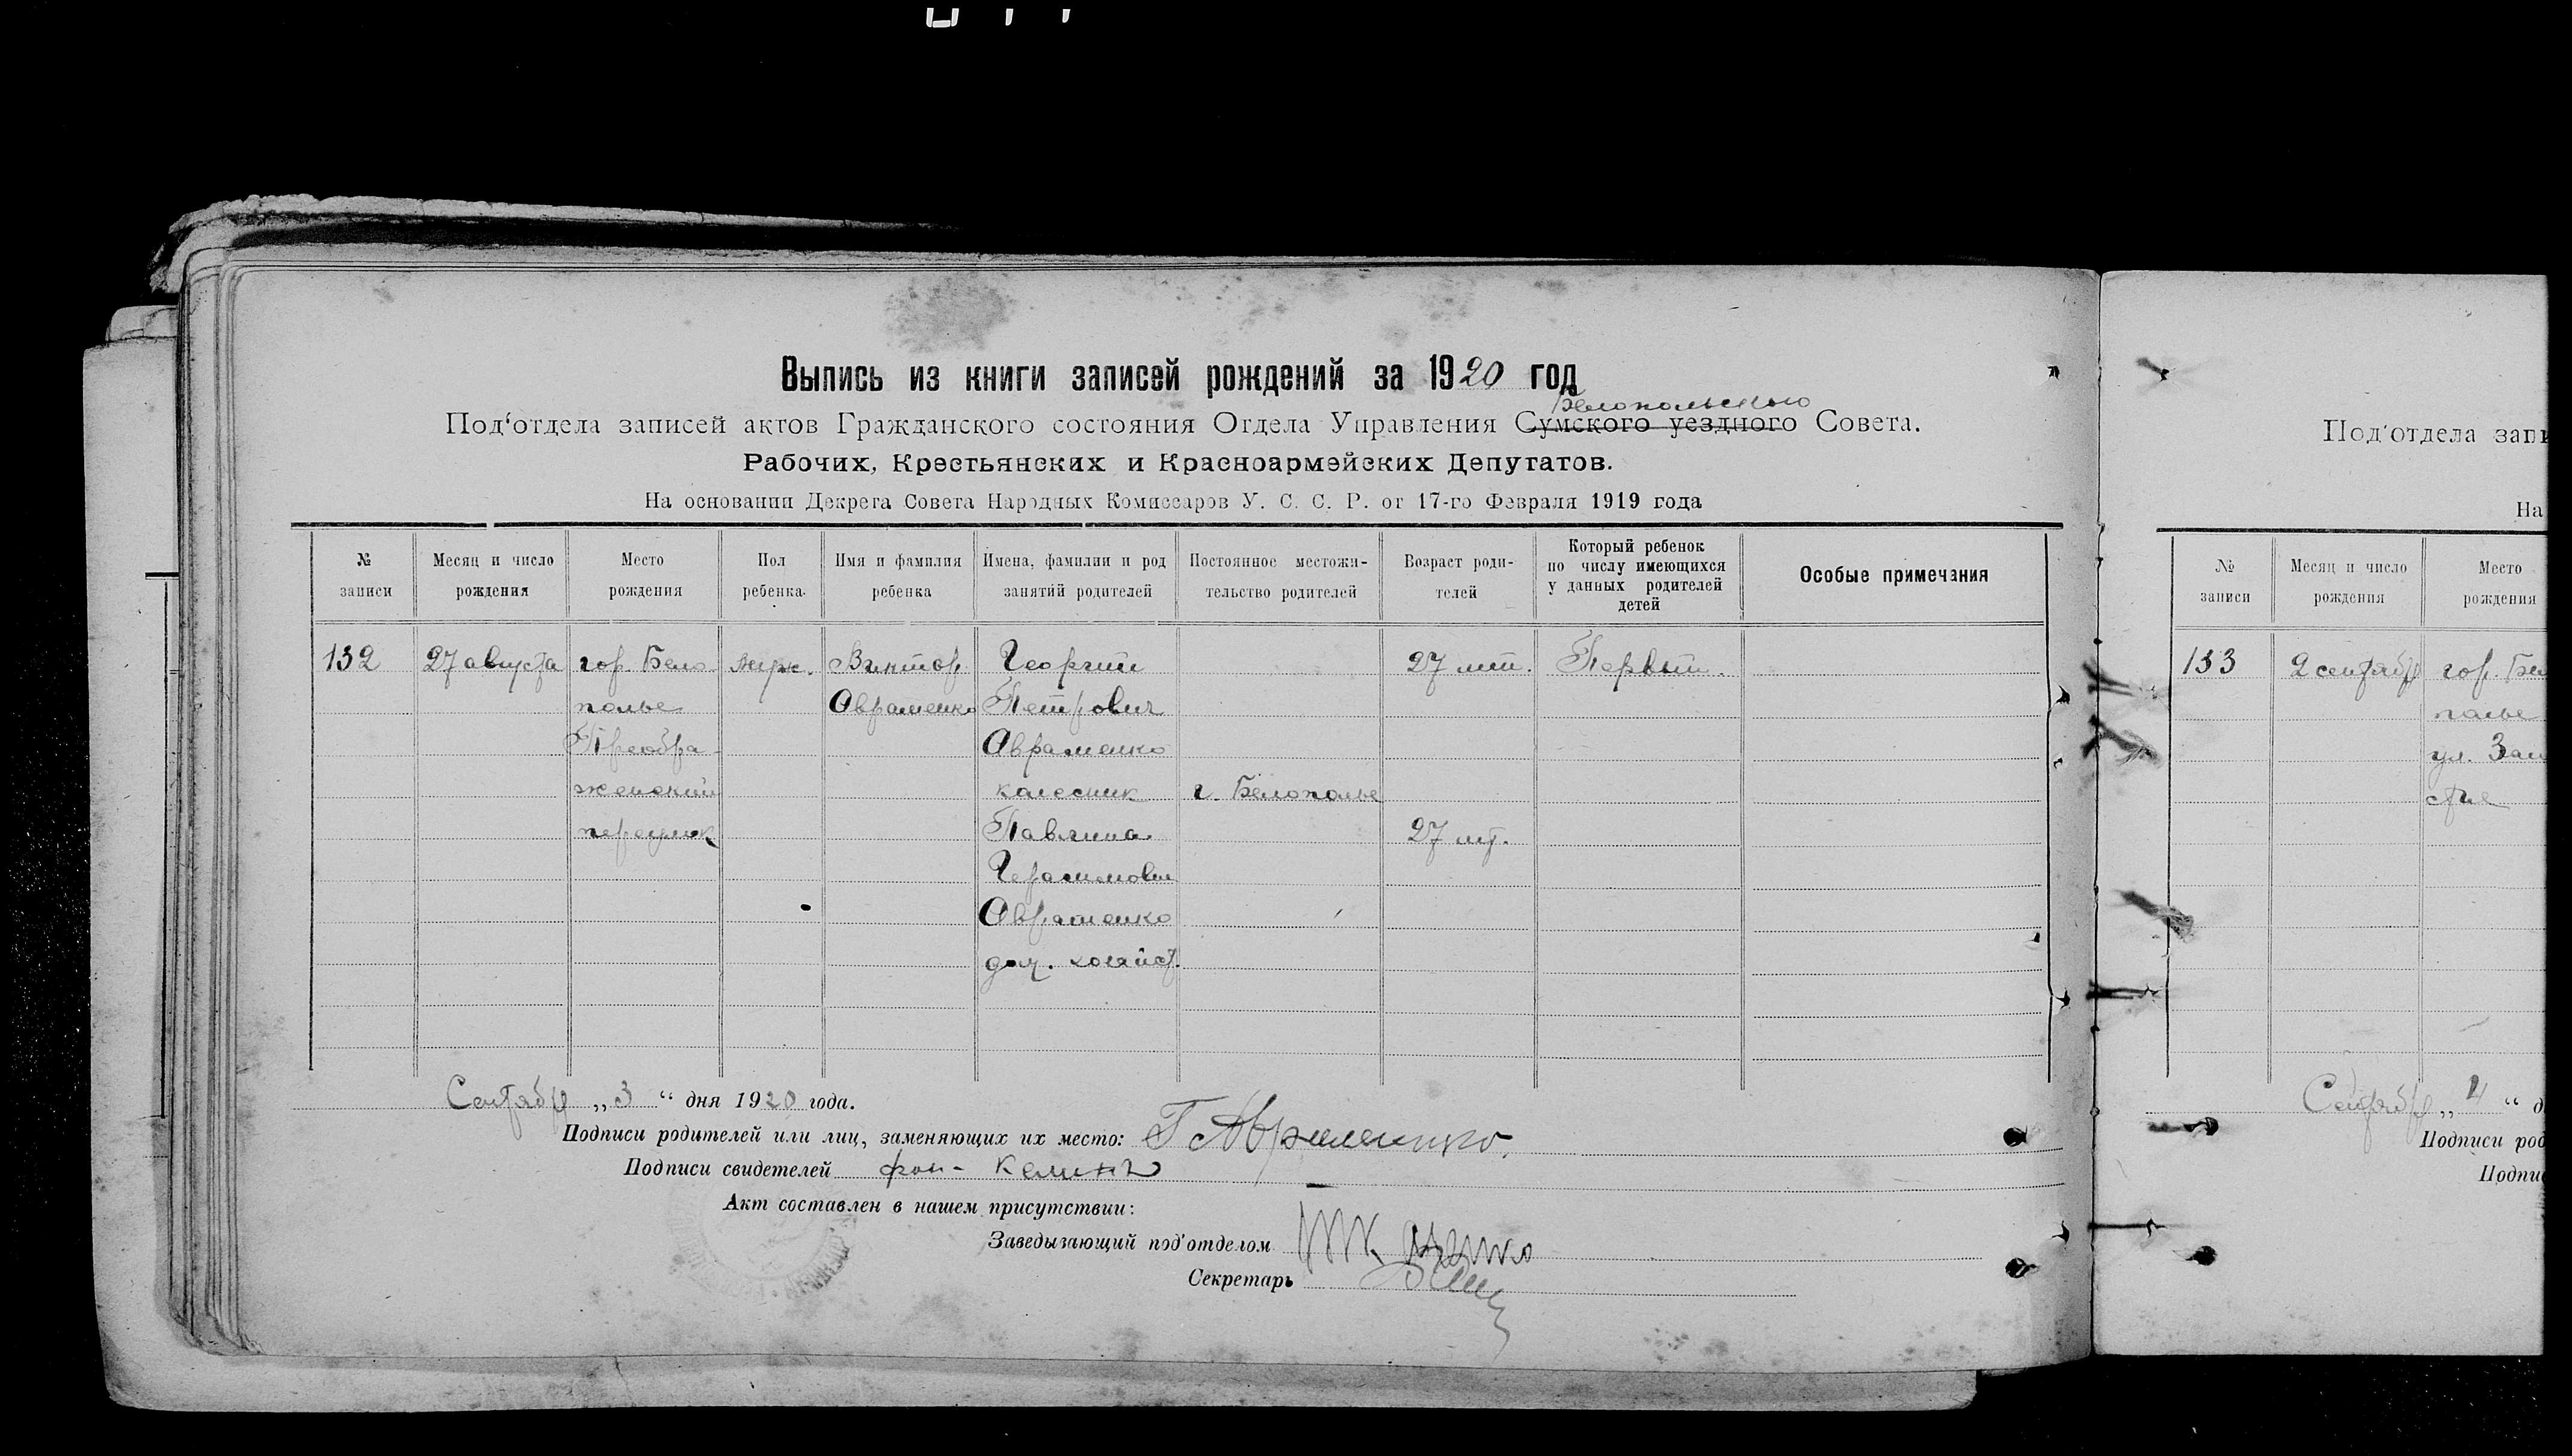 Выпись из книги записей рождений за 1920 год
Белопольского
Под‘отдела записей актов Гражданского состояния Отдела Управления Сумского уездного Совета.
Рабочих, Крестьянских и Красноармейских Депутатов.
На основании Декрета Совета Народных Комиссаров У. С. С. Р. от 17-го Февраля 1919 года
№ записи
Месяц и число рождения
Место рождения
Пол ребенка
Имя и фамилия ребенка
Имена, фамилии и род занятий родителей
Постоянное местожи-
тельство родителей
Возраст роди-
телей
Который ребенок
по числу имеющихся
у данных родителей
детей
Особые примечания
132
27 августа
гор. Бело
полье
Преобра-
женский
переулок
муж.
Виктор
Авраменко
Георгий
Петрович
Авраменко
колесник
Павлина
Герасимовн
Авраменко
дом. хозяйст.
г. Белополье
27 лет.
27 лет.
Первый.
Сентября „3“ дня 1920 года.
Подписи родителей или лиц, заменяющих их место: Г Авраменко.
Подписи свидетелей фон-
Акт составлен в нашем присутствии:
Заведывающий под‘отделом
Секретарь
Под‘отдела запи
На
№ записи
Месяц и число рождения
Место рождения
133
2 сентября
гор. Бел
полье
ул. Зам
стье
Сентября „4“ д
Подписи род
Подпи